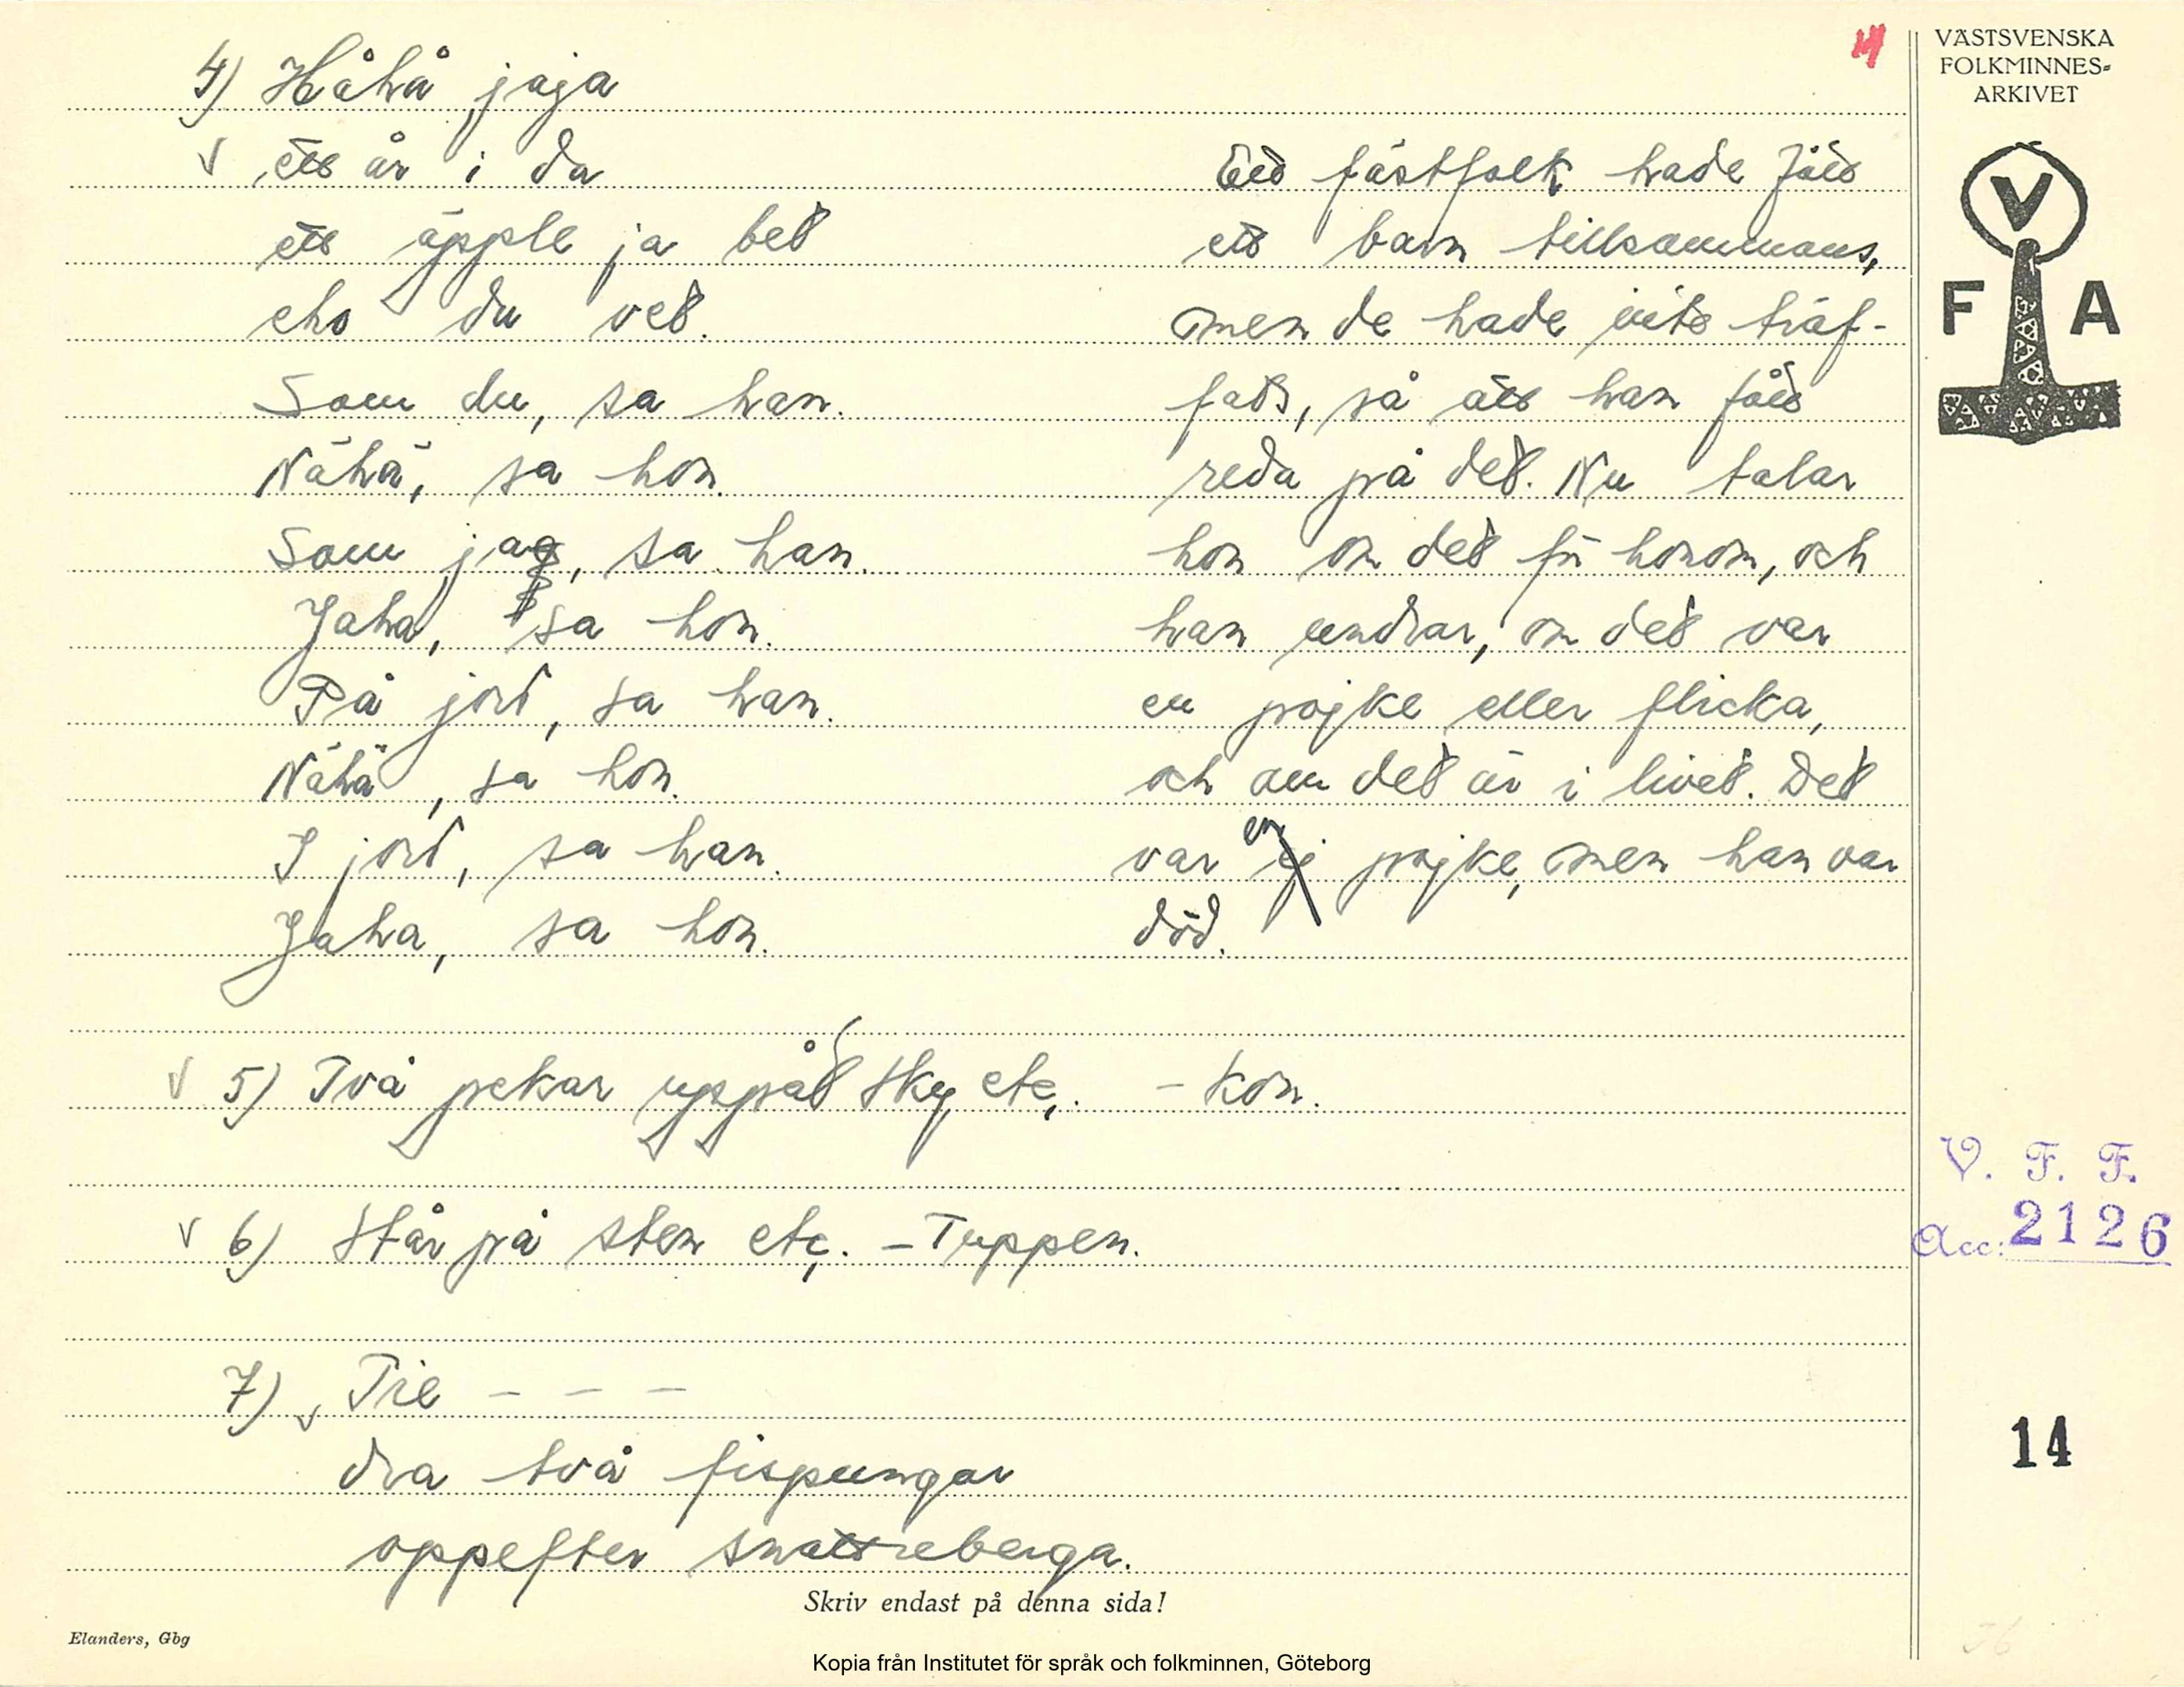 4) Håhå jaja
ett år i da
ett äpple ja bet
eho du vet.
Som du, sa han.
Nähä, sa hon.
Som jag, sa han.
Jaha, sa hon.
På jord, sa han.
Nähä, sa hon.
I jord, sa han.
Jaha, sa hon.
Ett fästfolk hade fått
ett barn tillsammans,
men de hade inte träf-
fats, så att han fått
reda på det. Nu talar
hon om det för honom, och
han undrar, om det var
en pojke eller flicka,
och om det är i livet. Det
var en pojke, men han var
död.
5) Två pekar uppåt sky etc. - Kon.
6) Står på sten etc. - Tuppen.
7) Tre - - -
dra två fispungar
oppefter snattreberga.
Skriv endast på denna sida!
Elanders, Gbg
Kopia från Institutet för språk och folkminnen, Göteborg
VÄSTSVENSKA
FOLKMINNES-
ARKIVET
V
F A
V. F. F.
Acc: 2126
14